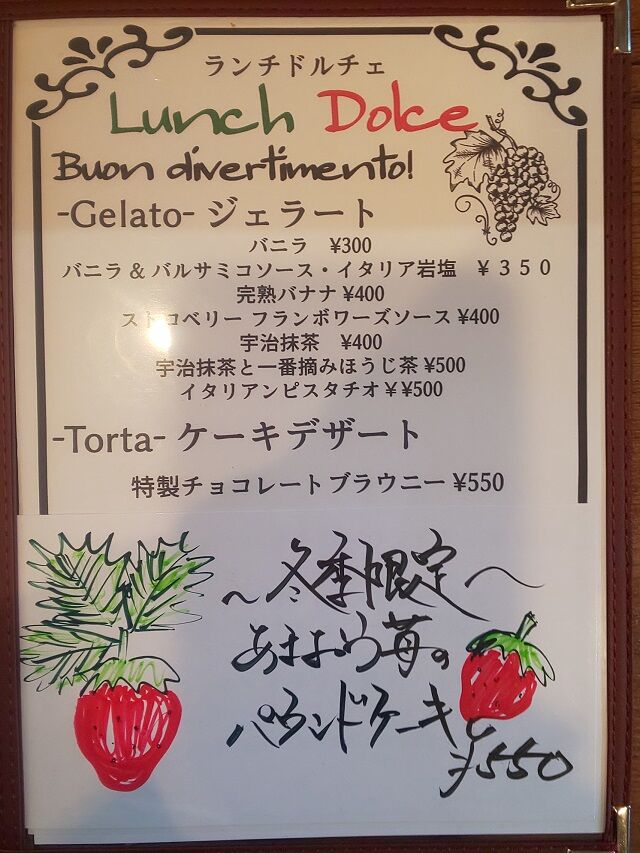 ランチドルチェ
Lunch Dolce
Buon divertimento!
-Gelato- ジェラート
バニラ ¥300
バニラ & バルサミコソース・イタリア岩塩 ¥350
完熟バナナ ¥400
ストロベリー フランボワーズソース ¥400
宇治抹茶 ¥400
宇治抹茶と一番摘みほうじ茶 ¥500
イタリアンピスタチオ ¥¥500
-Torta- ケーキデザート
特製チョコレートブラウニー ¥550
～冬季限定～
あまおう苺の
パウンドケーキ
¥550